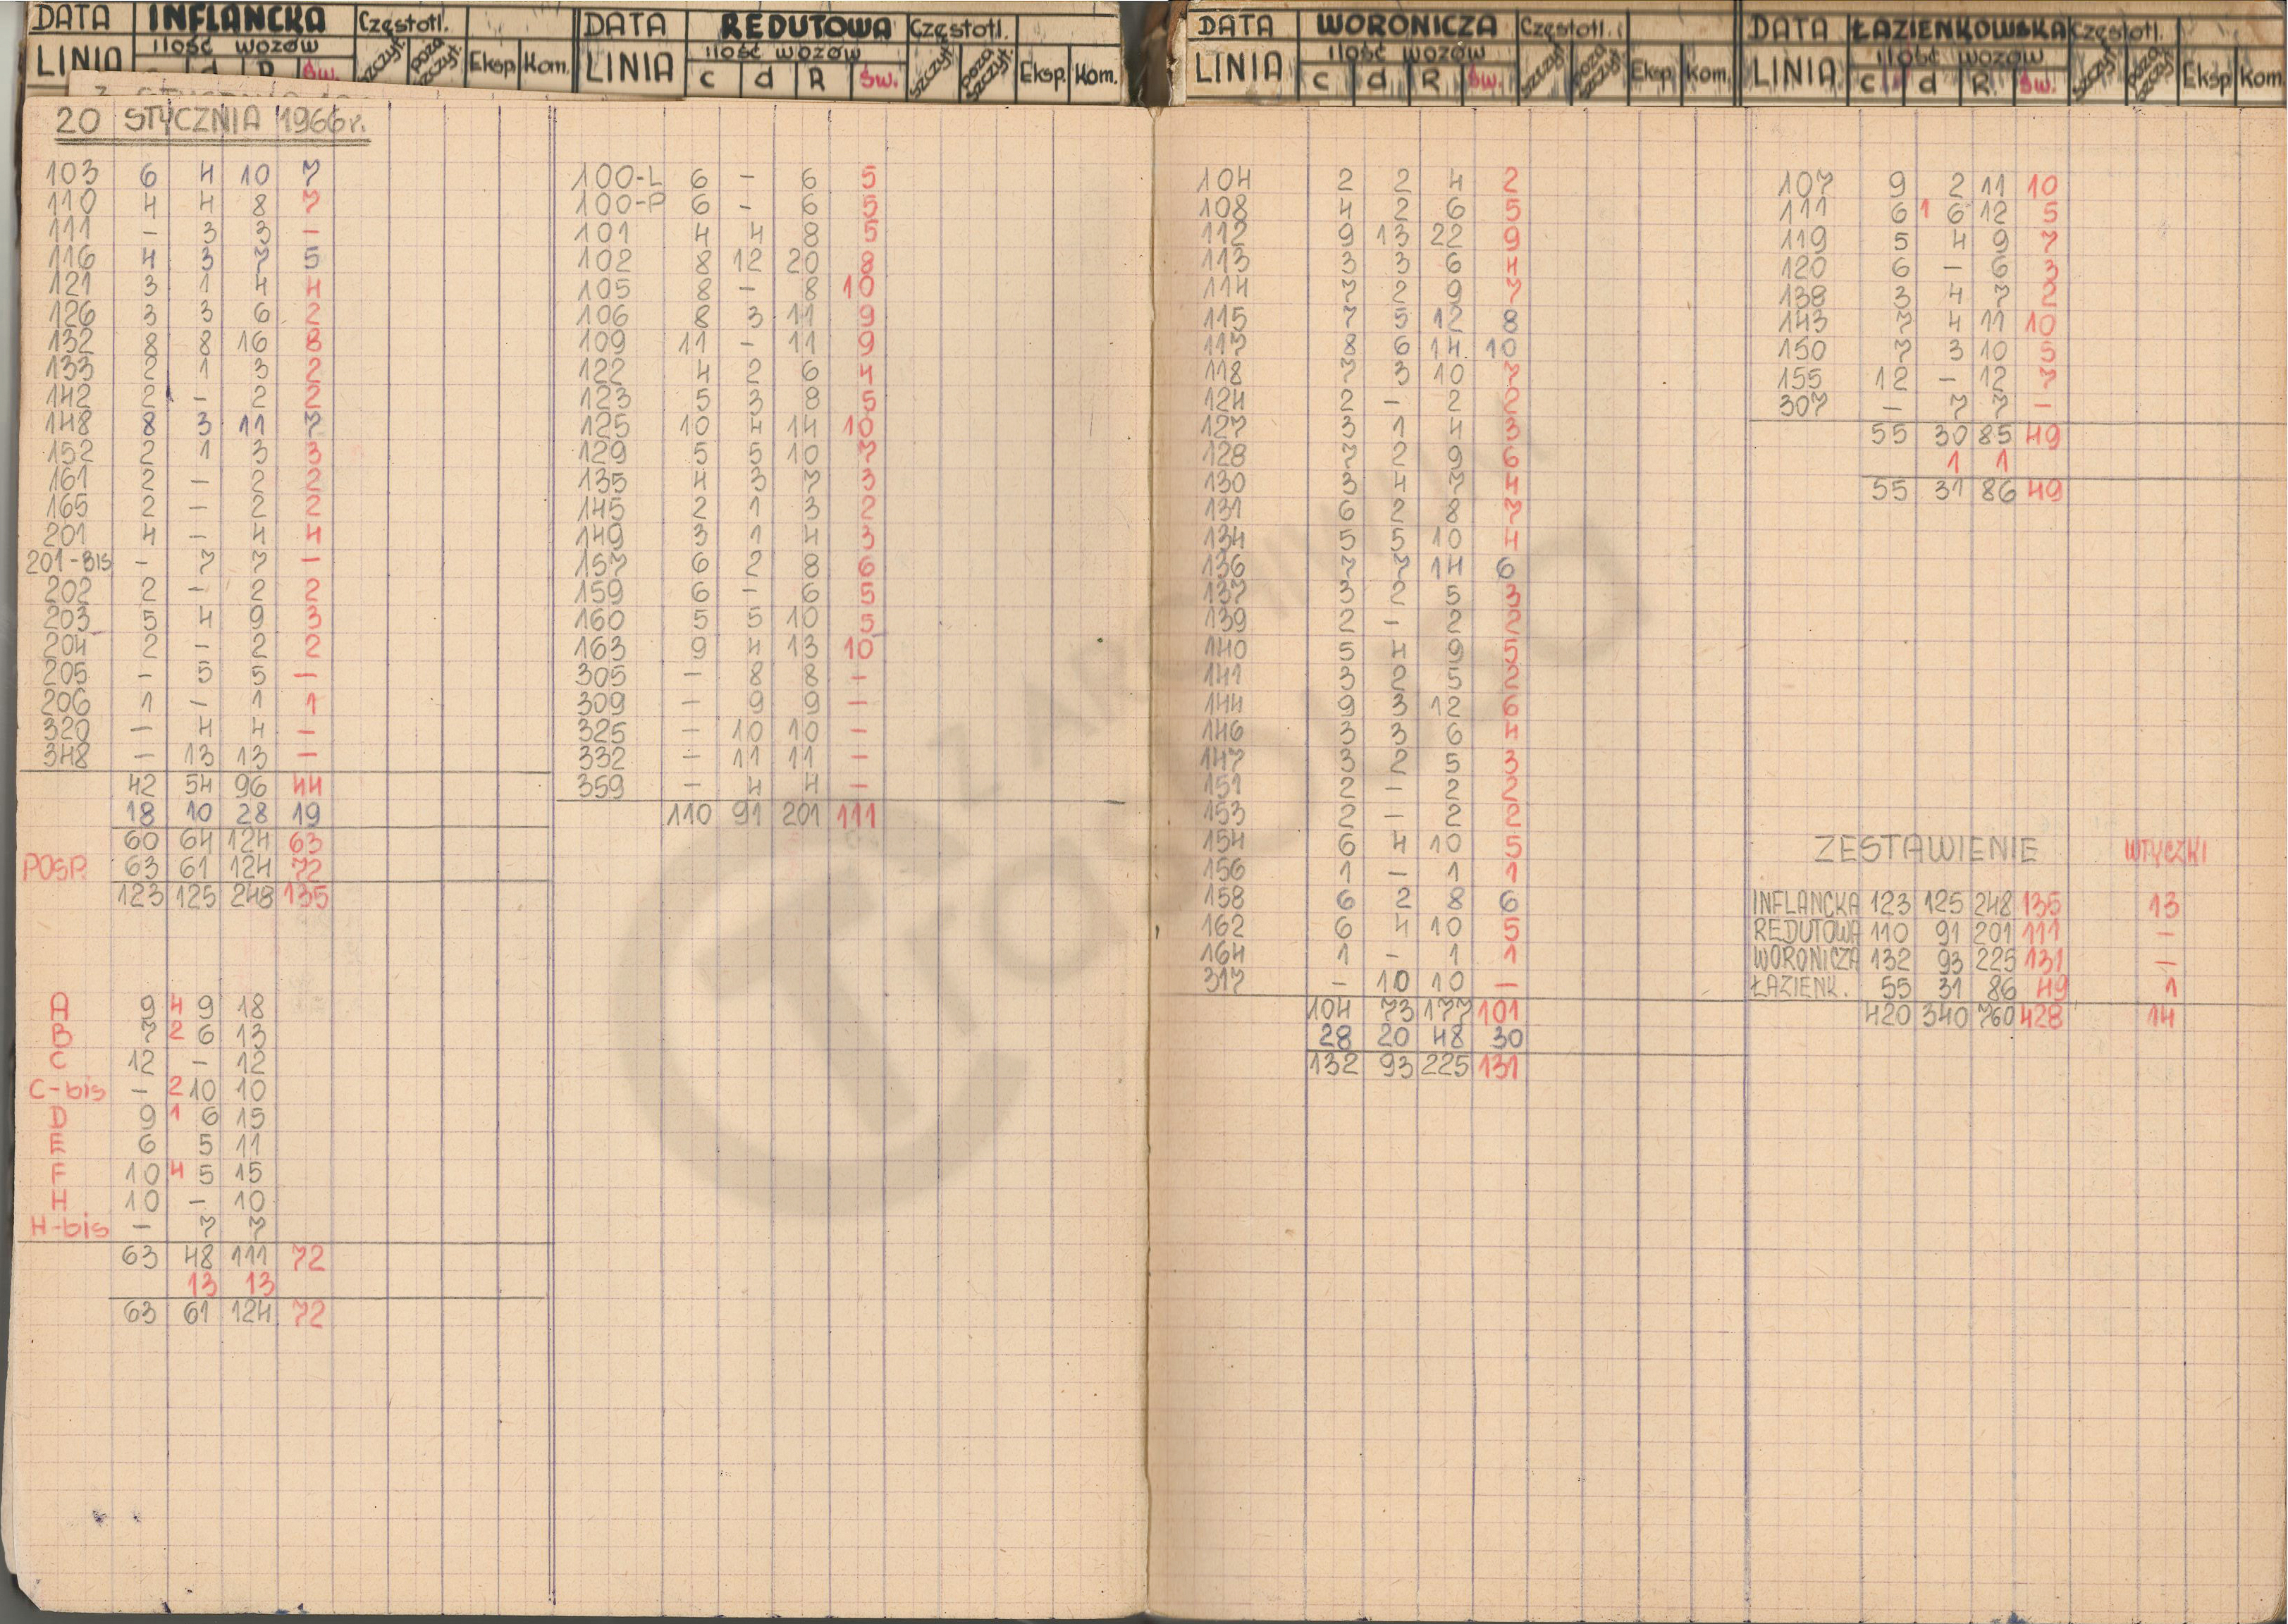 DATA INFLANCKA Częstotl.
LINIA ilość wozów szczyt. poza szczyt. Eksp. Kom.
c d R św.
20 STYCZNIA 1966 r.
103 6 4 10 7
110 4 4 8 7
111 - 3 3 -
116 4 3 7 5
121 3 1 4 4
126 3 3 6 2
132 8 8 16 8
133 2 1 3 2
142 2 - 2 2
148 8 3 11 7
152 2 1 3 3
161 2 - 2 2
165 2 - 2 2
201 4 - 4 4
201-BIS - 7 7 -
202 2 - 2 2
203 5 4 9 3
204 2 - 2 2
205 - 5 5 -
206 1 - 1 1
320 - 4 4 -
348 - 13 13 -
42 54 96 44
18 10 28 19
60 64 124 63
POSP. 63 61 124 72
123 125 248 135
A 9 4 9 18
B 7 2 6 13
C 12 - 12
C-bis - 2 10 10
D 9 1 6 15
E 6 5 11
F 10 4 5 15
H 10 - 10
H-bis - 7 7
63 48 111 72
13 13
63 61 124 72
DATA REDUTOWA Częstotl.
LINIA ilość wozów szczyt poza szczyt. Eksp. Kom.
c d R św.
100-L 6 - 6 5
100-P 6 - 6 5
101 4 4 8 5
102 8 12 20 8
105 8 - 8 10
106 8 3 11 9
109 11 - 11 9
122 4 2 6 4
123 5 3 8 5
125 10 4 14 10
129 5 5 10 7
135 4 3 7 3
145 2 1 3 2
149 3 1 4 3
157 6 2 8 6
159 6 - 6 5
160 5 5 10 5
163 9 4 13 10
305 - 8 8 -
309 - 9 9 -
325 - 10 10 -
332 - 11 11 -
359 - 4 4 -
110 91 201 111
DATA WORONICZA Częstotl.
LINIA ilość wozów szczyt poza szczyt Eksp. Kom.
c d R św.
104 2 2 4 2
108 4 2 6 5
112 9 13 22 9
113 3 3 6 4
114 7 2 9 7
115 7 5 12 8
117 8 6 14 10
118 7 3 10 7
124 2 - 2 2
127 3 1 4 3
128 7 2 9 6
130 3 4 7 4
131 6 2 8 7
134 5 5 10 4
136 7 7 14 6
137 3 2 5 3
139 2 - 2 2
140 5 4 9 5
141 3 2 5 2
144 9 3 12 6
146 3 3 6 4
147 3 2 5 3
151 2 - 2 2
153 2 - 2 2
154 6 4 10 5
156 1 - 1 1
158 6 2 8 6
162 6 4 10 5
164 1 - 1 1
317 - 10 10 -
104 73 177 101
28 20 48 30
132 93 225 131
DATA ŁAZIENKOWSKA Częstotl.
LINIA ilość wozów szczyt poza szczyt Eksp Kom.
c d R. św.
107 9 2 11 10
111 6 1 6 12 5
119 5 4 9 7
120 6 - 6 3
138 3 4 7 2
143 7 4 11 10
150 7 3 10 5
155 12 - 12 7
307 - 7 7 -
55 30 85 49
1 1
55 31 86 49
ZESTAWIENIE WTYCZKI
INFLANCKA 123 125 248 135 13
REDUTOWA 110 91 201 111 -
WORONICZA 132 93 225 131 -
ŁAZIENK. 55 31 86 49 1
420 340 760 428 14